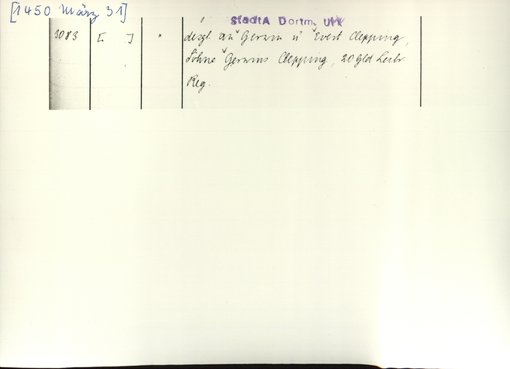 [1450 März 31]
StadtA Dortm. Urk
3083 [ ] " deszl an Gerwin u Evert Clepping,
Söhne Gerwins Clepping, 20 Gld Leibr
Reg.